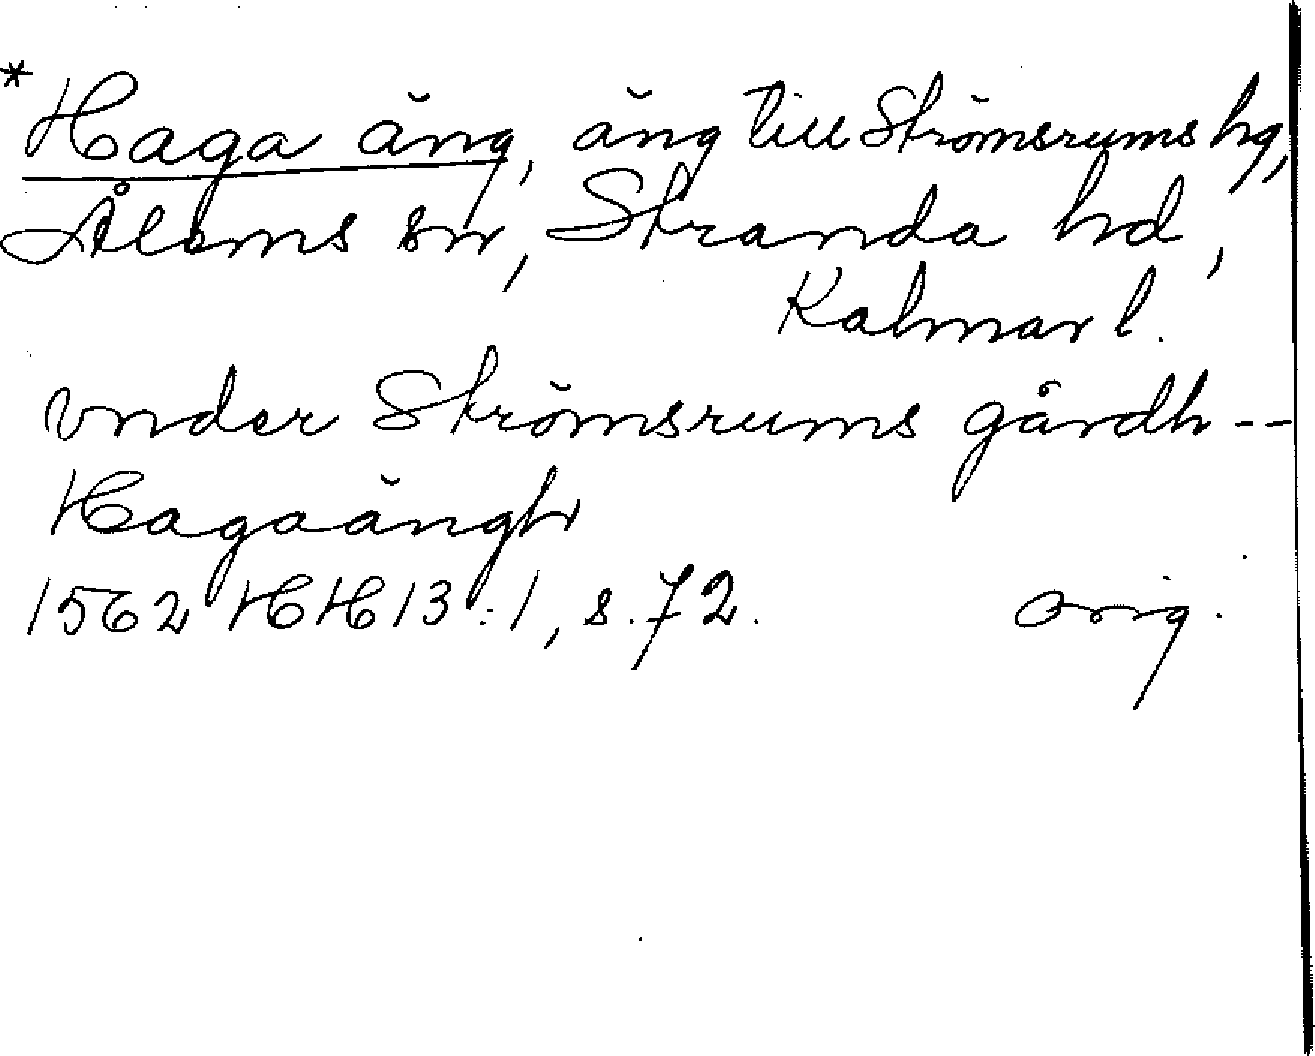 *Haga äng, äng till Strömsrums hg,
Ålems sn, Stranda hd,
Kalmar l.
vnder Strömsrums gårdh --
Hagaängh
1562 HH 13:1, s. 72. orig.